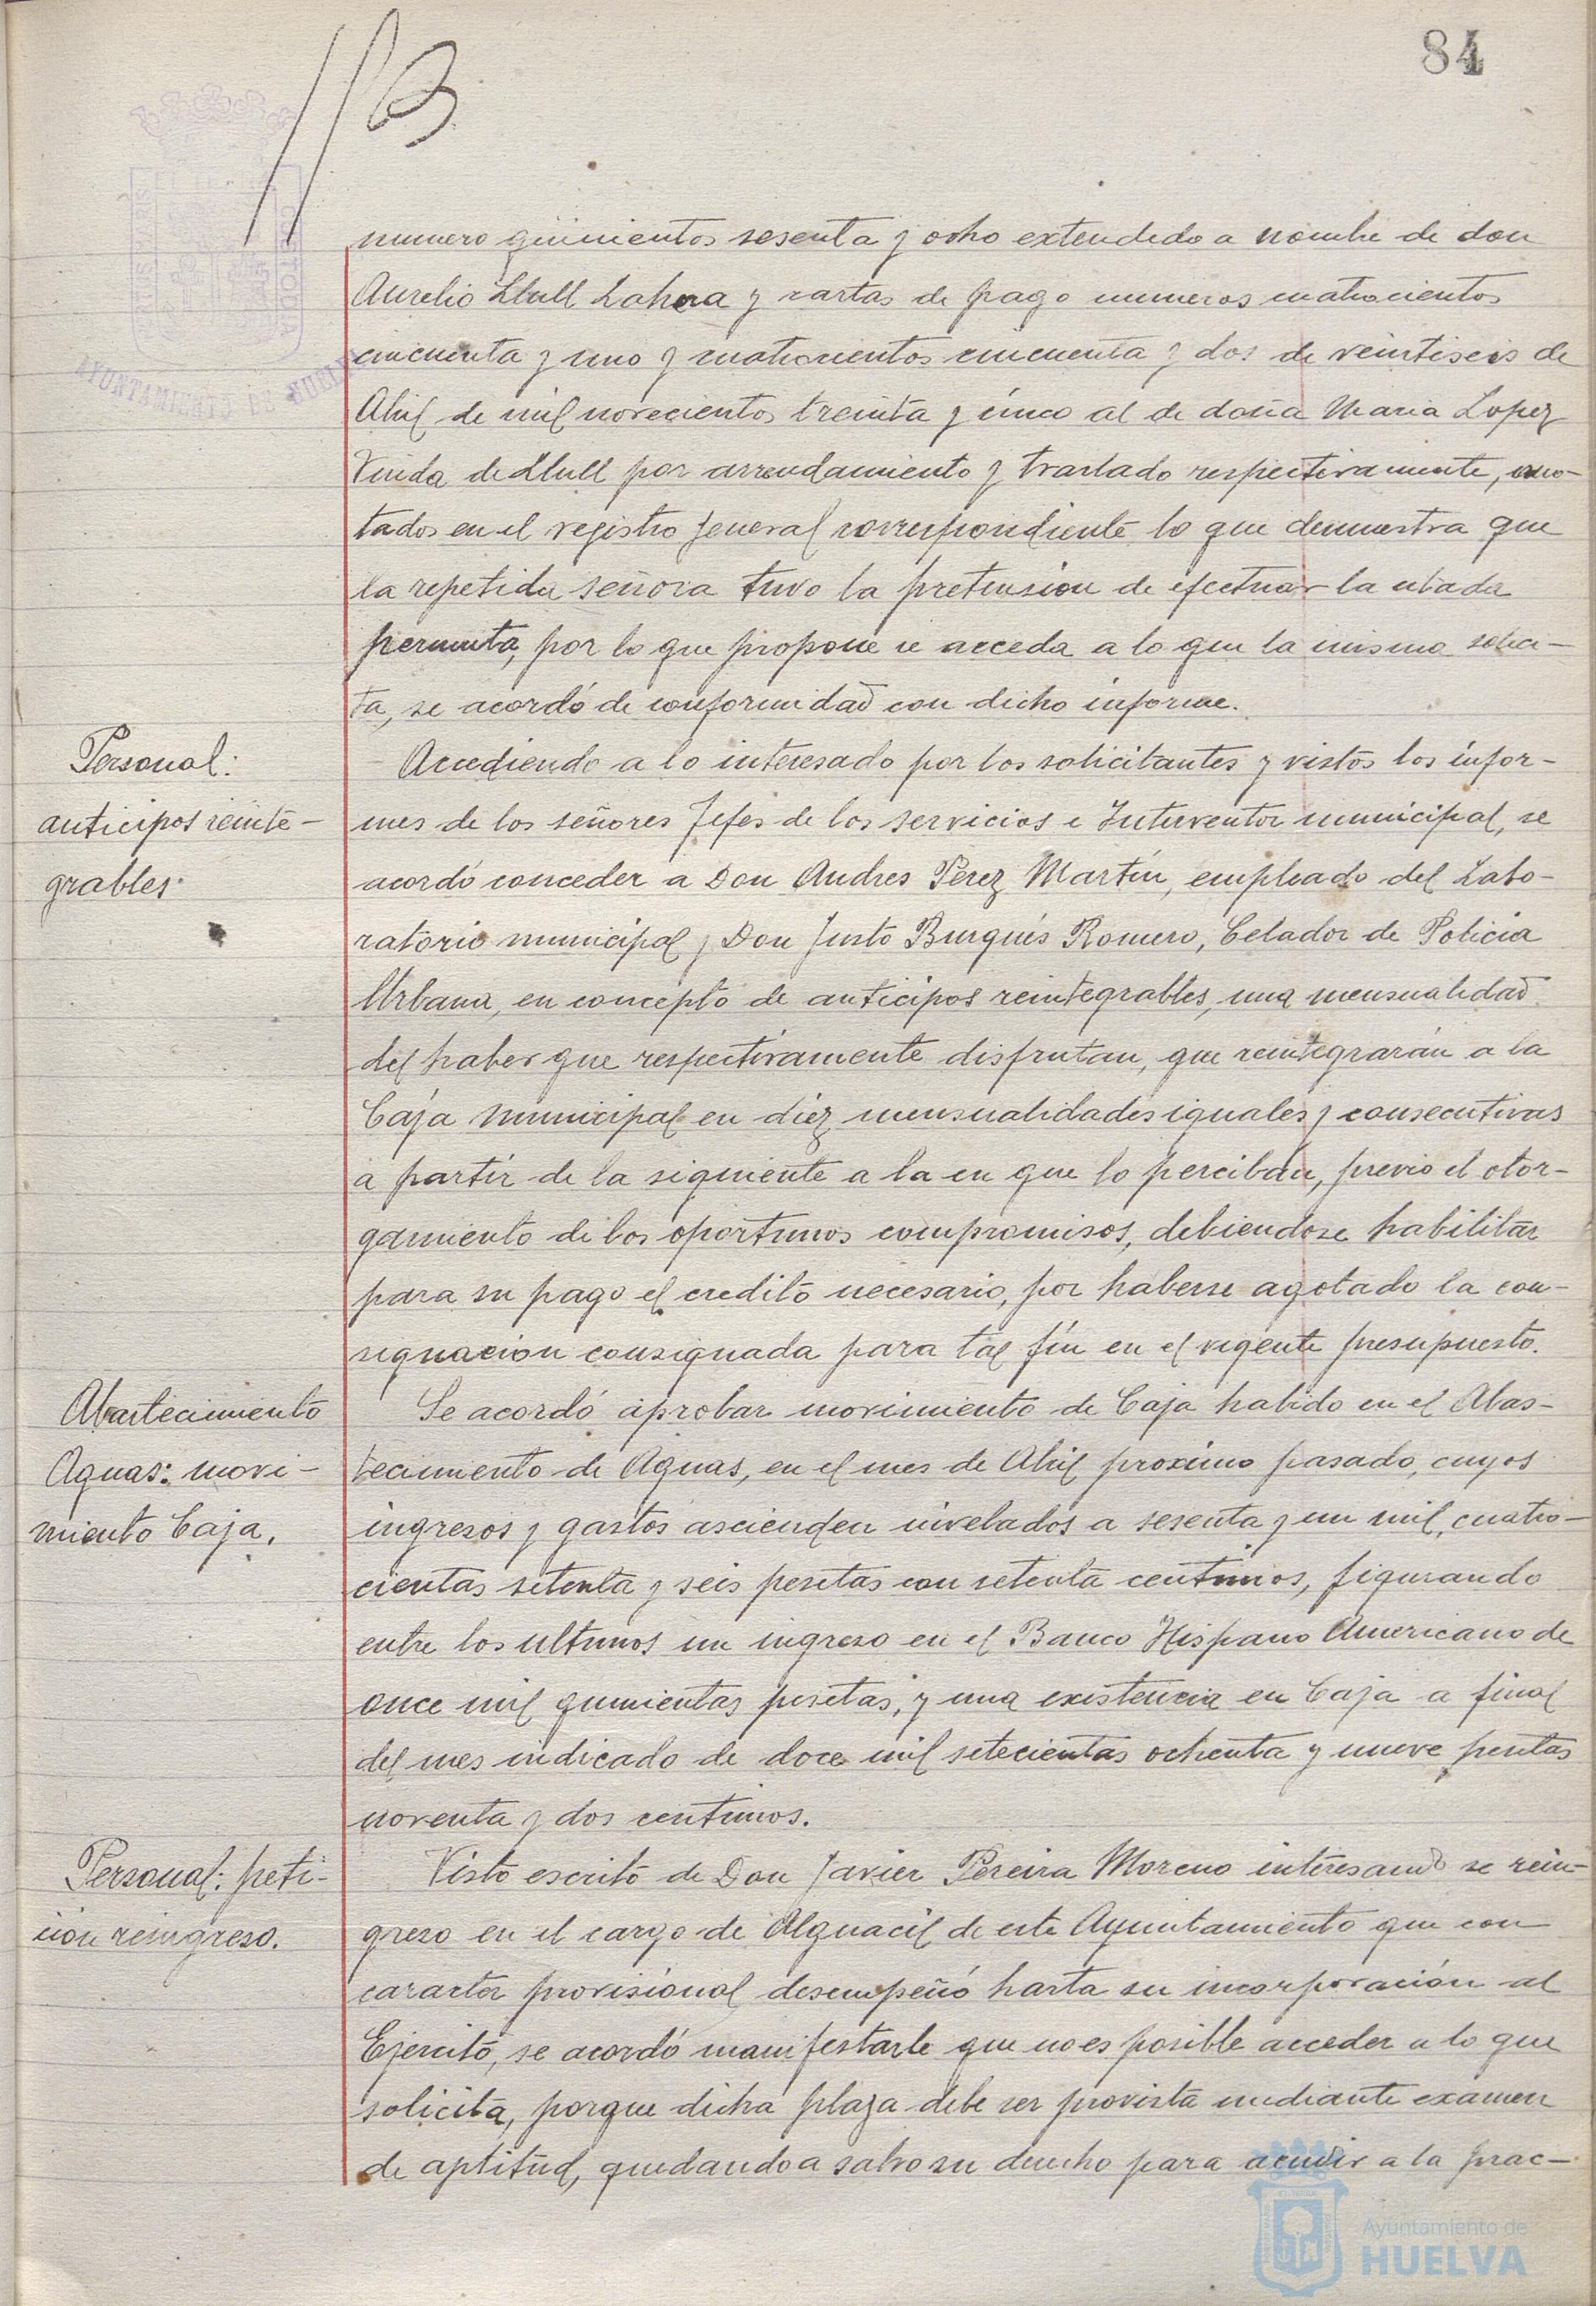 84
numero quinientos sesenta y ocho extendido a nombre de don
Aurelio Llull Lahera y cartas de pago numeros cuatrocientos
cincuenta y uno y cuatrocientos cincuenta y dos de veintiseis de
Abril de mil novecientos treinta y cinco al de doña Maria Lopez
Viuda de Llull por arrendamiento y traslado respectivamente, ano-
tados en el registro general correspondiente lo que demuestra que
la repetida señora tuvo la pretension de efectuar la citada
permuta, por lo que propone se acceda a lo que la misma solici-
ta, se acordó de conformidad con dicho informe.
Personal:
anticipos reinte-
grables.
Accediendo a lo interesado por los solicitantes y vistos los infor-
mes de los señores Jefes de los servicios e Interventor municipal, se
acordó conceder a Don Andres Perez Martín, empleado del Labo-
ratorio municipal y Don Justo Burqués Romero, Celador de Policia
Urbana, en concepto de anticipos reintegrables, una mensualidad
del haber que respectivamente disfrutan, que reintegrarán a la
Caja Municipal en diez mensualidades iguales y consecutivas
a partir de la siguiente a la en que lo perciban, previo el otor-
gamiento de los oportunos compromisos, debiendose habilitar
para su pago el credito necesario, por haberse agotado la con-
signacion consignada para tal fín en el vigente presupuesto.
Abastecimiento
Aguas: movi-
miento Caja.
Se acordó aprobar movimiento de Caja habido en el Abas-
tecimiento de Aguas, en el mes de Abril proximo pasado, cuyos
ingresos y gastos ascienden nivelados a sesenta y un mil, cuatro-
cientas setenta y seis pesetas con setenta centimos, figurando
entre los ultimos un ingreso en el Banco Hispano Americano de
once mil quinientas pesetas, y una existencia en Caja a final
del mes indicado de doce mil setecientas ochenta y nueve pesetas
noventa y dos centimos.
Personal: peti-
ción reingreso.
Visto escrito de Don Javier Pereira Moreno interesando se rein-
greso en el cargo de Alguacil de este Ayuntamiento que con
caracter provisional desempeñó hasta su incorporación al
Ejercito, se acordó manifestarle que no es posible acceder a lo que
solicita, porque dicha plaza debe ser provista mediante examen
de aptitud, quedando a salvo su derecho para acudir a la prac-
AYUNTAMIENTO DE HUELVA
Ayuntamiento de
HUELVA